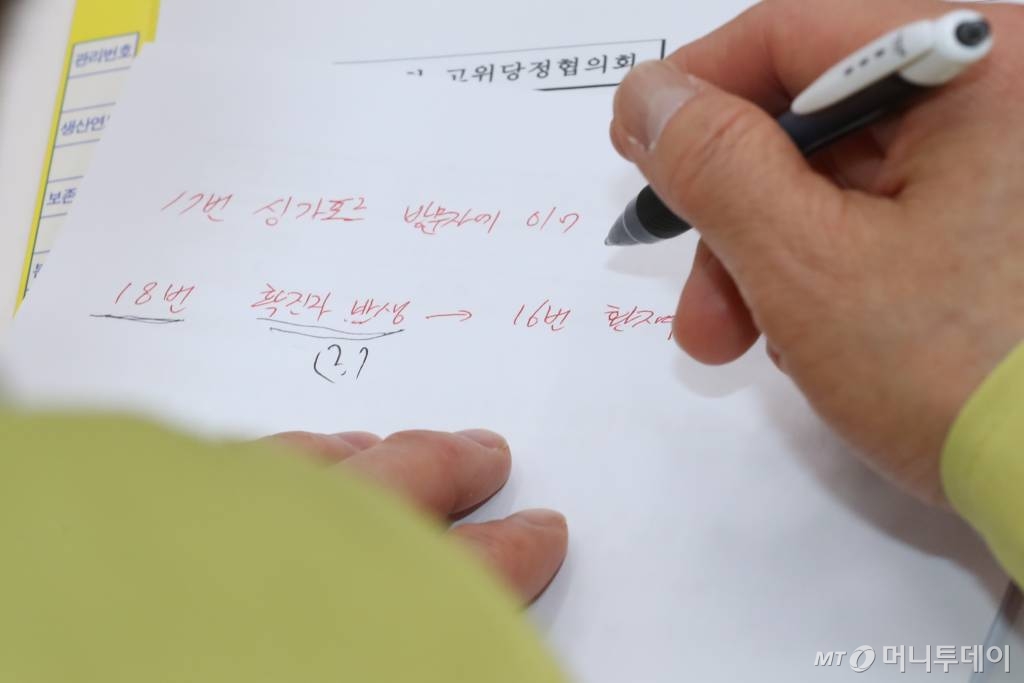 관리번호
생산연
보존
고위당정협의회
17번 싱가포르 방문자이 이어
18번 확진자 발생 → 16번 환자
(?)
MT 머니투데이